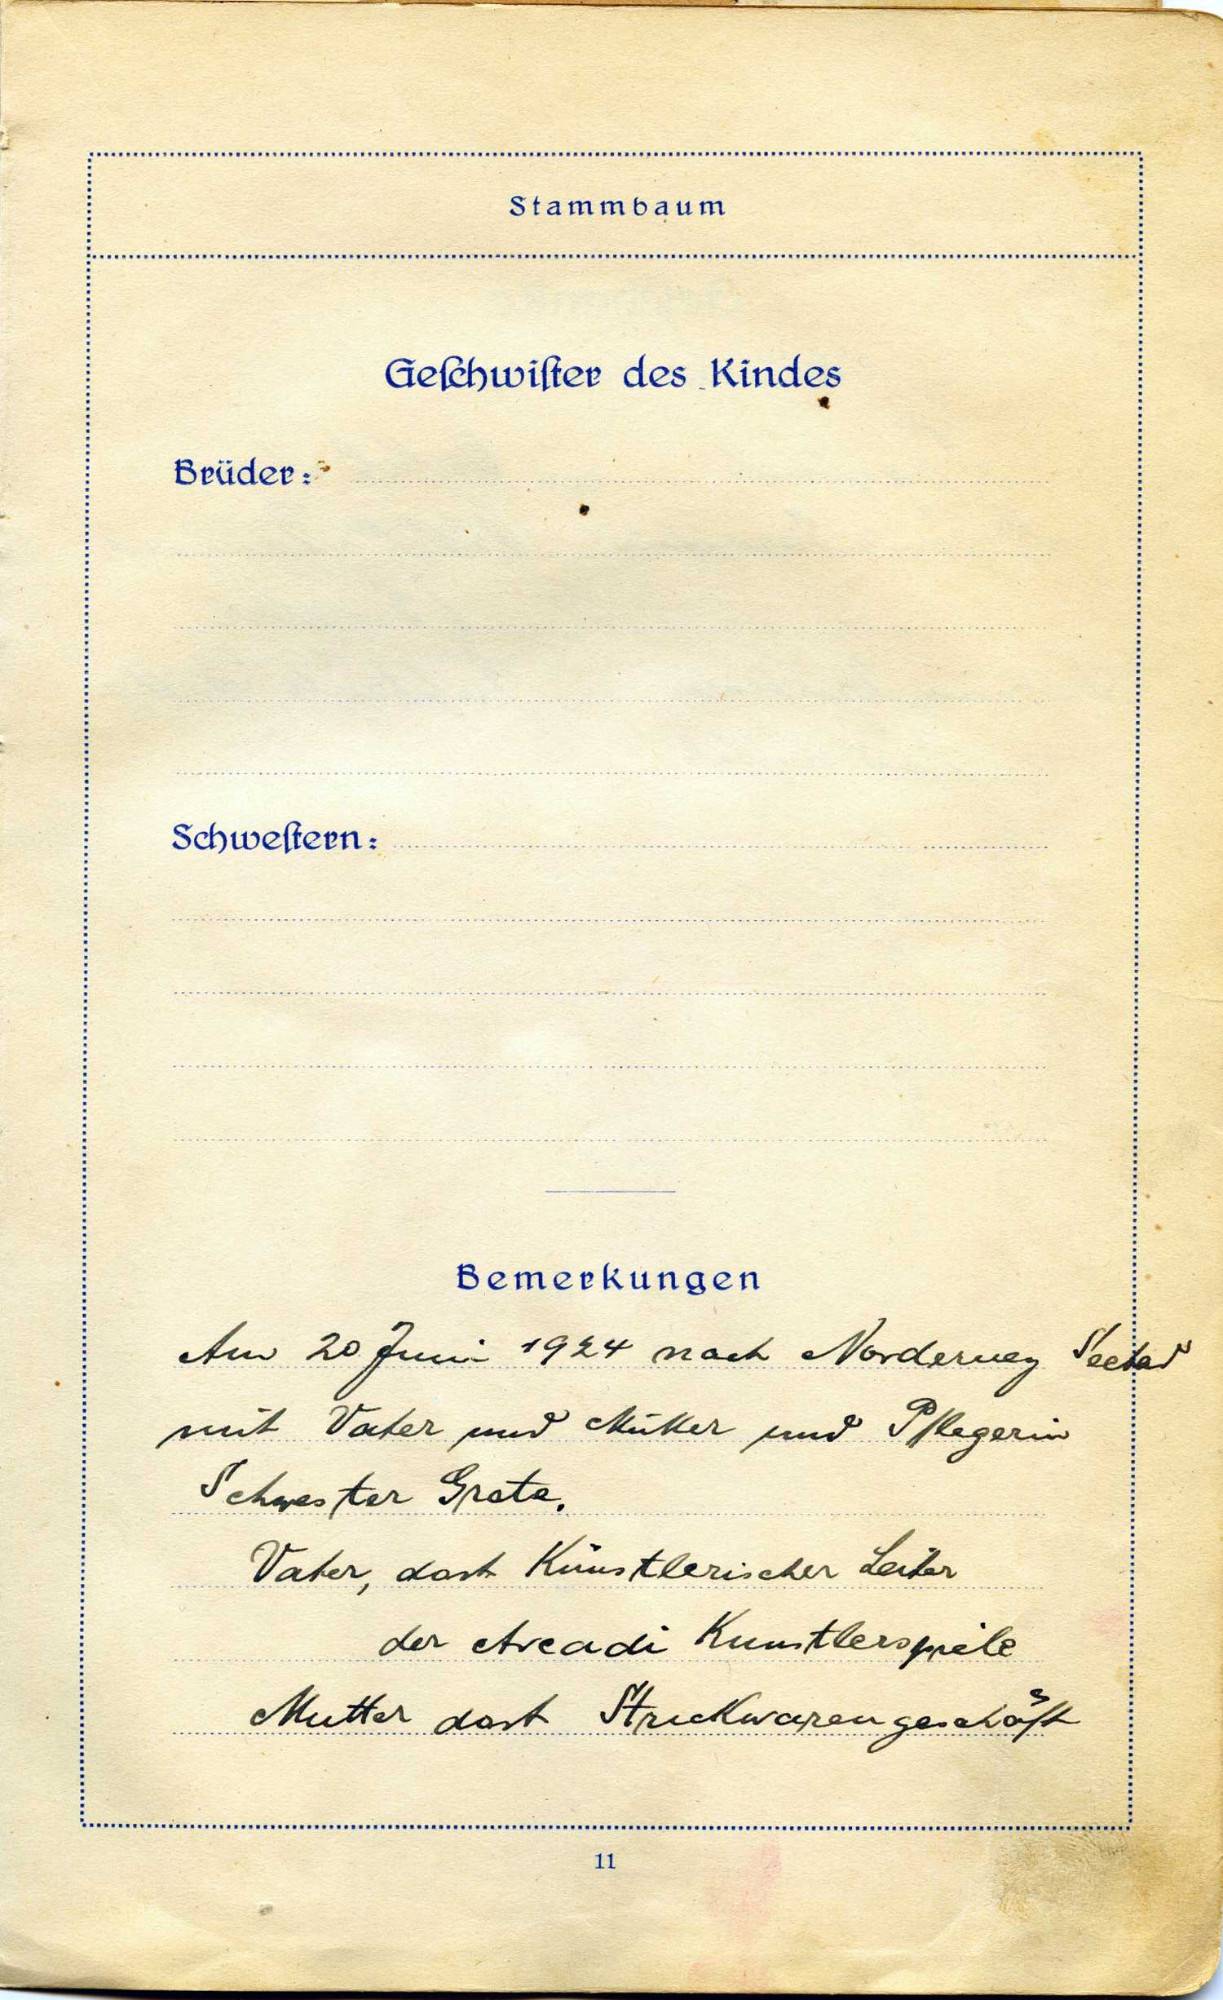 Stammbaum
Geſchwiſter des Kindes
Brüder:
Schweſtern:
Bemerkungen
Am 20 Juni 1924 nach Norderney Seebad
mit Vater und Mutter und Pflegerin
Schwester Grete.
Vater, dort Künstlerischer Leiter
der Arcadi Kunstlerspiele
Mutter dort Strickwarengeschäft
11